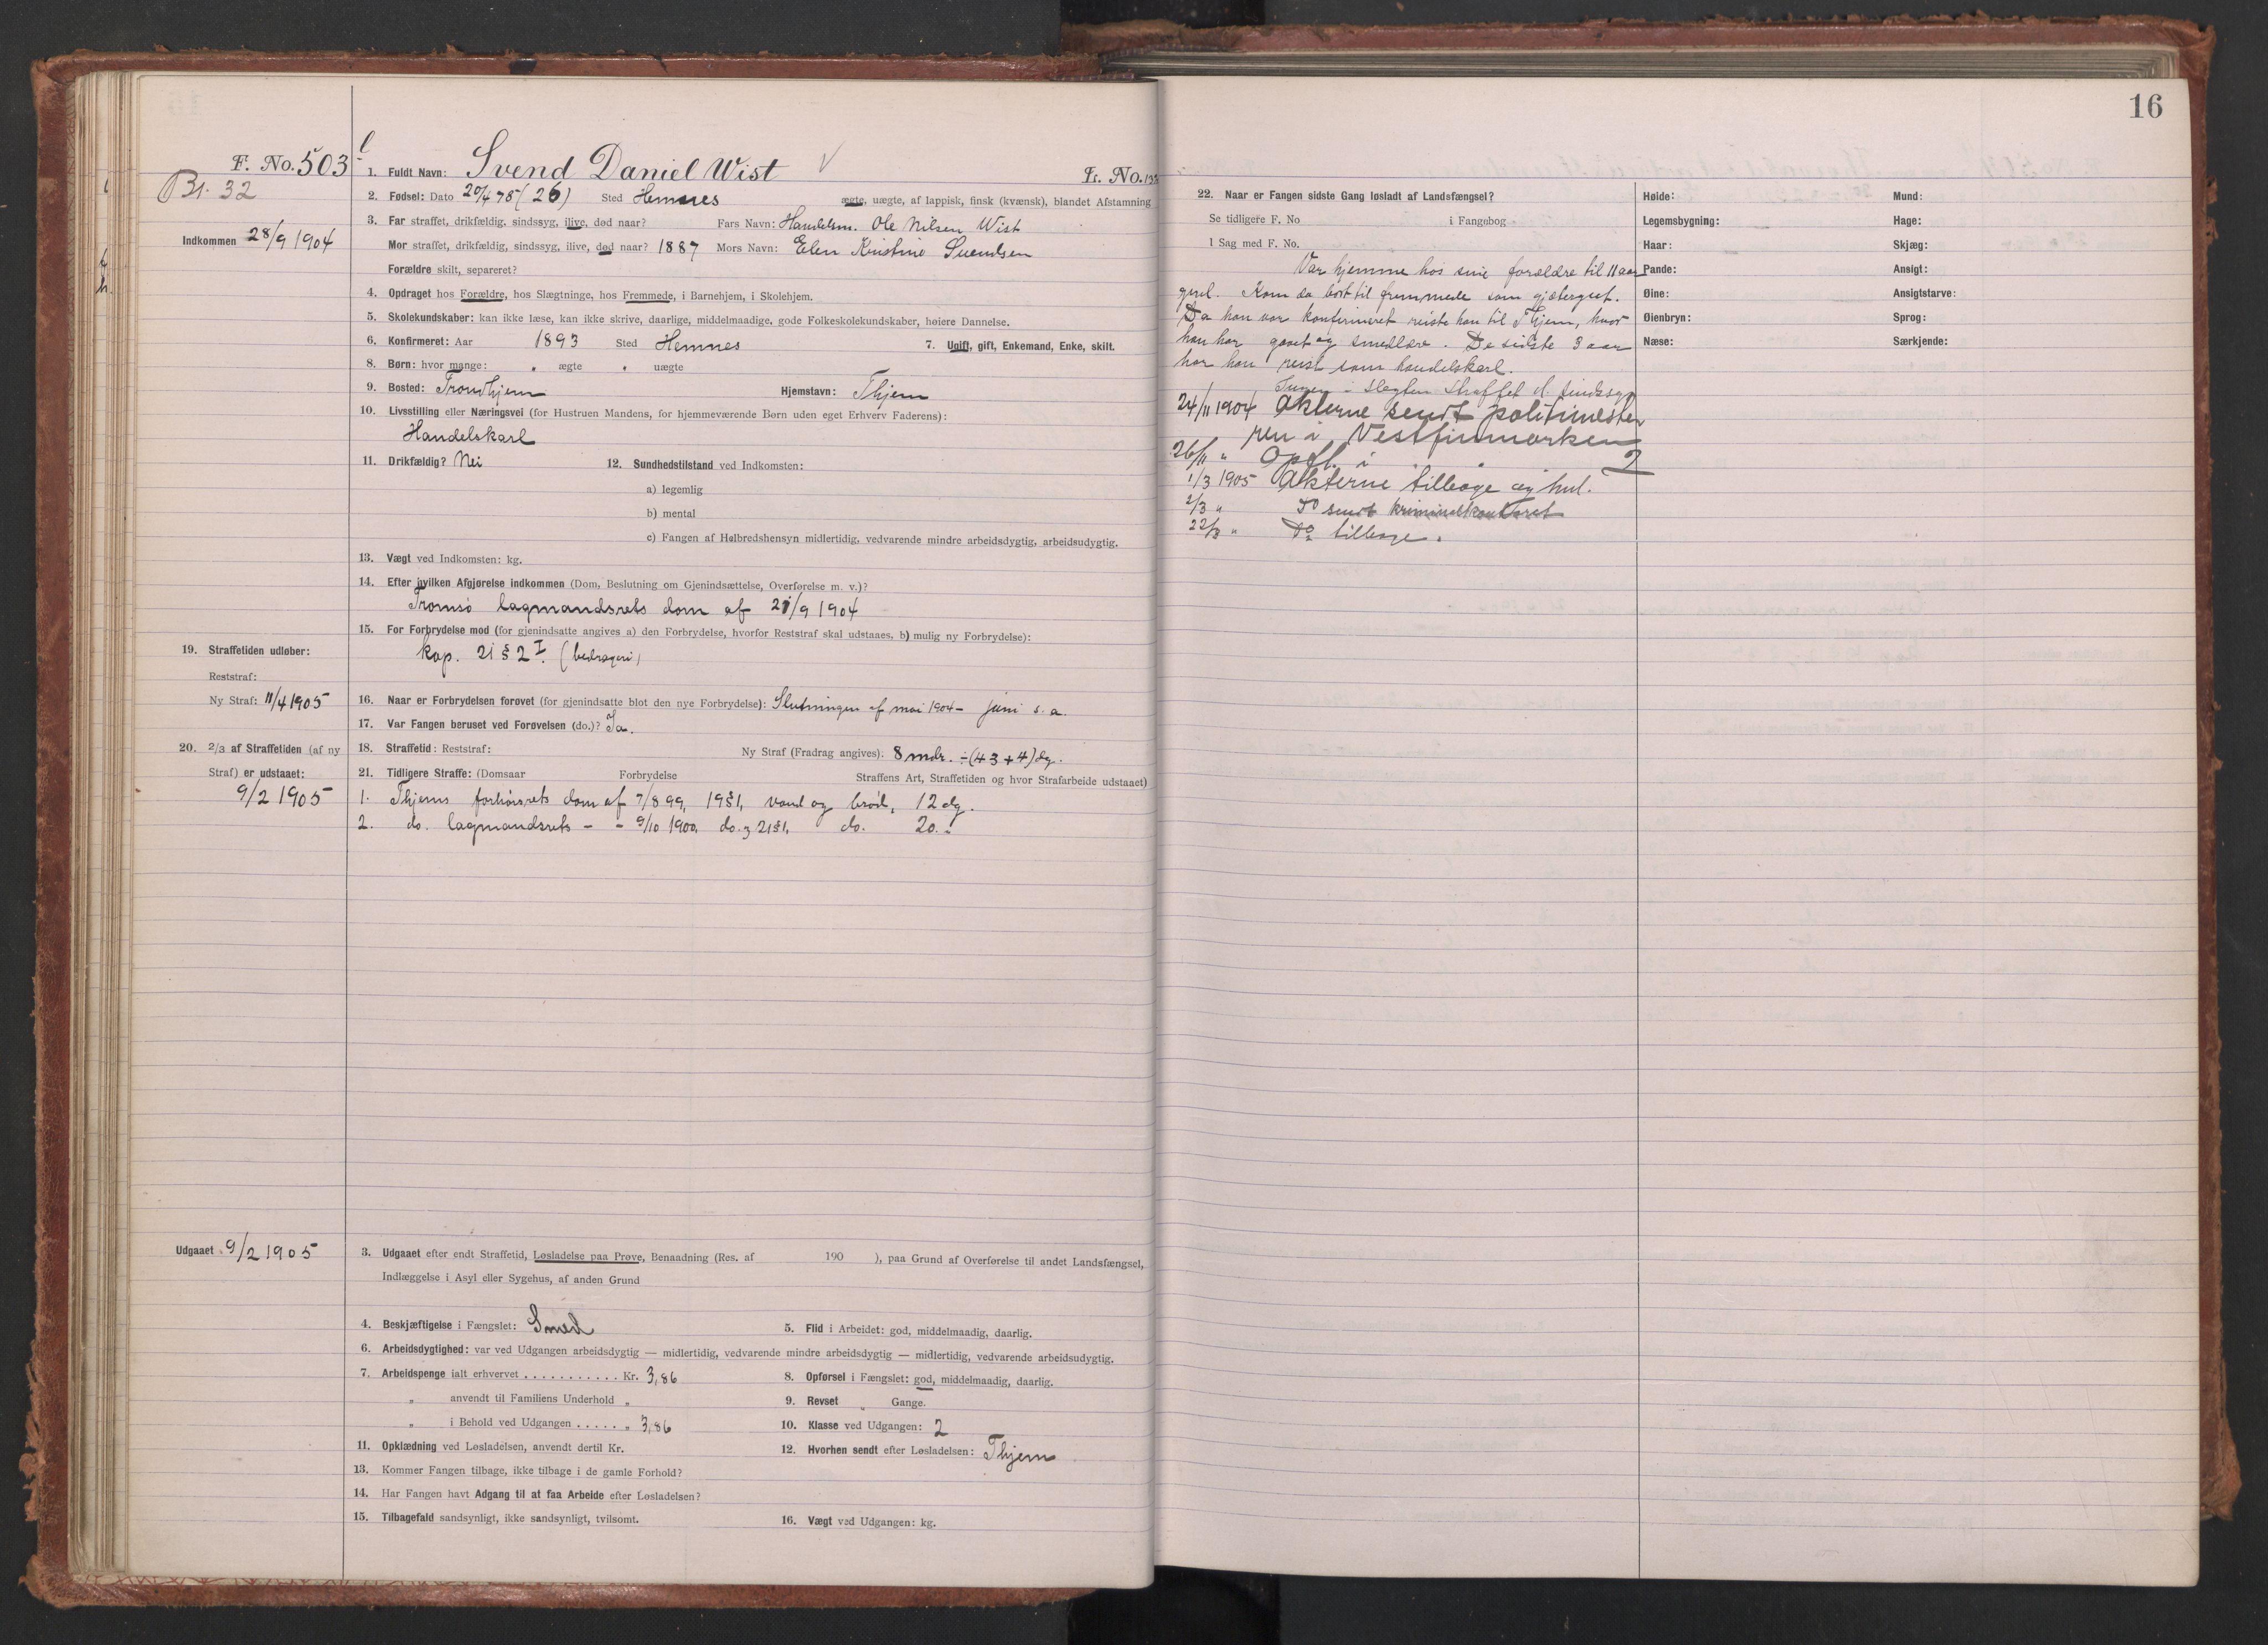 16
F. No. 503
Br. 32
Indkommen 28/9 1904
1. Fuldt Navn: Svend Daniel Wist
Fr. No.
2. Fødsel: Dato 20/4 78 (26) Sted Hemnes ægte, uægte, af lappisk, finsk (kvænsk), blandet Afstamning
3. Far straffet, drikfældig, sindssyg, ilive, død naar? Fars Navn: Handelsm. Ole Nilsen Wist
Mor straffet, drikfældig, sindssyg, ilive, død naar? 1887 Mors Navn: Elen Kristine Svendsen
Forældre skilt, separeret?
4. Opdraget hos Forældre, hos Slægtninge, hos Fremmede, i Barnehjem, i Skolehjem.
5. Skolekundskaber: kan ikke læse, kan ikke skrive, daarlige, middelmaadige, gode Folkeskolekundskaber, høiere Dannelse.
6. Konfirmeret: Aar 1893 Sted Hemnes 7. Ugift, gift, Enkemand, Enke, skilt.
8. Børn: hvor mange: " ægte " uægte
9. Bosted: Trondhjem Hjemstavn: Thjem
10. Livsstilling eller Næringsvei (for Hustruen Mandens, for hjemmeværende Børn uden eget Erhverv Faderens):
Handelskarl
11. Drikfældig? Nei 12. Sundhedstilstand ved Indkomsten:
a) legemlig
b) mental
c) Fangen af Helbredshensyn midlertidig, vedvarende mindre arbeidsdygtig, arbeidsudygtig.
13. Vægt ved Indkomsten: kg.
14. Efter hvilken Afgjørelse indkommen (Dom, Beslutning om Gjenindsættelse, Overførelse m. v.)?
Tromsø lagmandsrets dom af 21/9 1904
15. For Forbrydelse mod (for gjenindsatte angives a) den Forbrydelse, hvorfor Reststraf skal udstaaes, b) mulig ny Forbrydelse):
kap. 21 § 2 I. (bedrageri)
19. Straffetiden udløber:
Reststraf:
Ny Straf: 11/4 1905
16. Naar er Forbrydelsen forøvet (for gjenindsatte blot den nye Forbrydelse): Slutningen af mai 1904 – juni s. a.
17. Var Fangen beruset ved Forøvelsen (do.)? Ja.
20. 2/3 af Straffetiden (af ny
Straf) er udstaaet:
9/2 1905
18. Straffetid: Reststraf: Ny Straf (Fradrag angives). 8 mdr. ÷ (43 + 4) dg.
21. Tidligere Straffe: (Domsaar Forbrydelse Straffens Art, Straffetiden og hvor Strafarbeide udstaaet)
1. Thjems forhørsrets dom af 7/8 99, 19 § 1, vand og brød, 12 dg.
2. do. lagmandsrets – – 9/10 1900, do. 21 § 1, do. 20. "
Udgaaet 9/2 1905
3. Udgaaet efter endt Straffetid, Løsladelse paa Prøve, Benaadning (Res. af 190 ), paa Grund af Overførelse til andet Landsfængsel,
Indlæggelse i Asyl eller Sygehus, af anden Grund
4. Beskjæftigelse i Fængslet: Smed 5. Flid i Arbeidet: god, middelmaadig, daarlig.
6. Arbeidsdygtighed: var ved Udgangen arbeidsdygtig — midlertidig, vedvarende mindre arbeidsdygtig — midlertidig, vedvarende arbeidsudygtig.
7. Arbeidspenge ialt erhvervet . . . . . . . . . . . Kr. 3,86 8. Opførsel i Fængslet: god, middelmaadig, daarlig.
" anvendt til Familiens Underhold " 9. Revset " Gange.
" i Behold ved Udgangen . . . . . " 3,86 10. Klasse ved Udgangen: 2
11. Opklædning ved Løsladelsen, anvendt dertil Kr. 12. Hvorhen sendt efter Løsladelsen: Thjem
13. Kommer Fangen tilbage, ikke tilbage i de gamle Forhold?
14. Har Fangen havt Adgang til at faa Arbeide efter Løsladelsen?
15. Tilbagefald sandsynligt, ikke sandsynligt, tvilsomt. 16. Vægt ved Udgangen: kg.
22. Naar er Fangen sidste Gang løsladt af Landsfængsel?
Se tidligere F. No i Fangebog
I Sag med F. No.
Var hjemme hos sine forældre til 11 aar
gml. Kom da bort til fremmede som gjætergut.
Da han var konfirmeret reiste han til Thjem, hvor
han har gaaet og smedlære. De sidste 3 aar
har han reist som handelskarl.
Ingen i slegten straffet el. sindssyg
24/11 1904 Akterne sendt politimeste
ren i Vestfinmarken
26/11 " Opfl. i 2
1/3 1905 Akterne tilbage
2/3 " Do sendt kriminalkontoret
22/3 " Do tilbage.
Høide: Mund:
Legemsbygning: Hage:
Haar: Skjæg:
Pande: Ansigt:
Øine: Ansigtstarve:
Øienbryn: Sprog:
Næse: Særkjende: